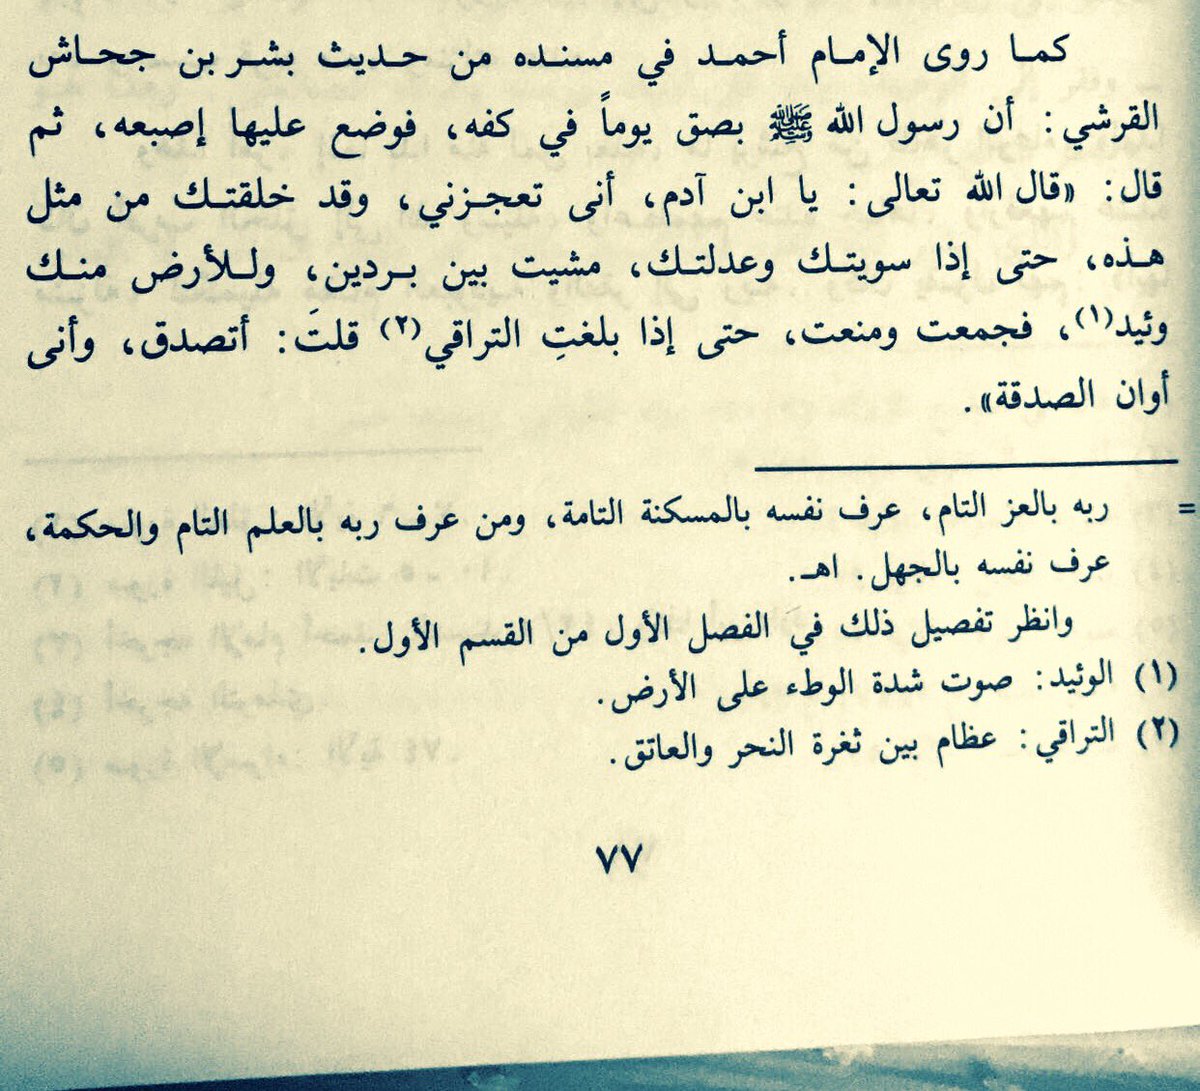 كما روى الإمام أحمد في مسنده من حديث بشر بن جحاش
القرشي: أن رسول الله ﷺ بصق يوماً في كفه، فوضع عليها إصبعه، ثم
قال: «قال الله تعالى: يا ابن آدم، أنى تعجزني، وقد خلقتك من مثل
هذه، حتى إذا سويتك وعدلتك، مشيت بين بردين، وللأرض منك
وئيد(١)، فجمعت ومنعت، حتى إذا بلغتِ التراقي(٢) قلتَ: أتصدق، وأنى
أوان الصدقة».
= ربه بالعز التام، عرف نفسه بالمسكنة التامة، ومن عرف ربه بالعلم التام والحكمة،
عرف نفسه بالجهل. اهـ.
وانظر تفصيل ذلك في الفصل الأول من القسم الأول.
(١) الوئيد: صوت شدة الوطء على الأرض.
(٢) التراقي: عظام بين ثغرة النحر والعاتق.
٧٧